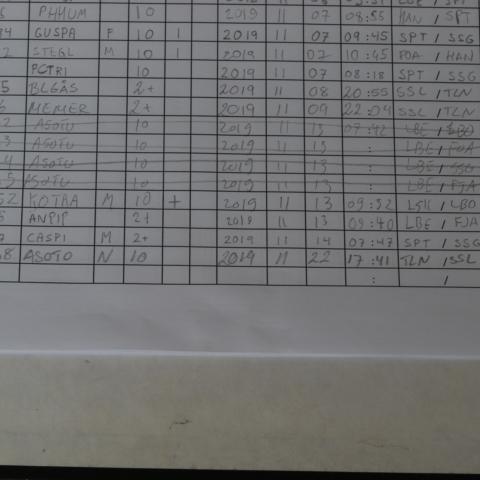 PHHUM 10 2019 11 07 08:55 HAN / SPT
GUSPA F 10 1 2019 11 07 09:45 SPT / SSG
STEGL M 10 1 2019 11 07 10:45 FOA / HAN
PCTRI 10 2019 11 07 08:18 SPT / SSG
BLGAS 2+ 2019 11 08 20:55 SSL / TLN
MEMER 2+ 2019 11 09 22:04 SSL / TLN
ASOTU 10 2019 11 13 07:42 LBE /
ASOTU 10 2019 11 13 : LBE / FOA
ASOTU 10 2019 11 13 : LBE / SSG
ASOTU 10 2019 11 13 : LBE / FJA
KOTRA M 10 + 2019 11 13 09:32 / LBO
ANPIP 2+ 2019 11 13 09:40 LBE / FJA
CASPI M 2+ 2019 11 14 07:47 SPT / SSG
ASOTO N 10 2019 11 22 17:41 TLN / SSL
: /